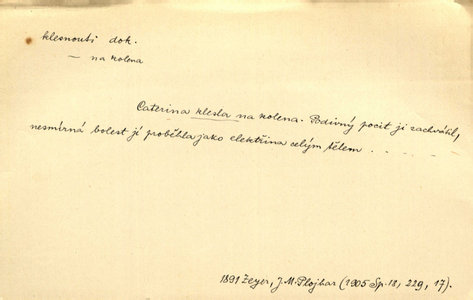 klesnouti dok.
— na kolena
Caterina klesla na kolena. Podivný pocit ji zachvátil,
nesmírná bolest jí proběhla jako elektřina celým tělem . . . . .
1891 Zeyer, J. M. Plojhar (1905 Sp. 18, 229, 17).